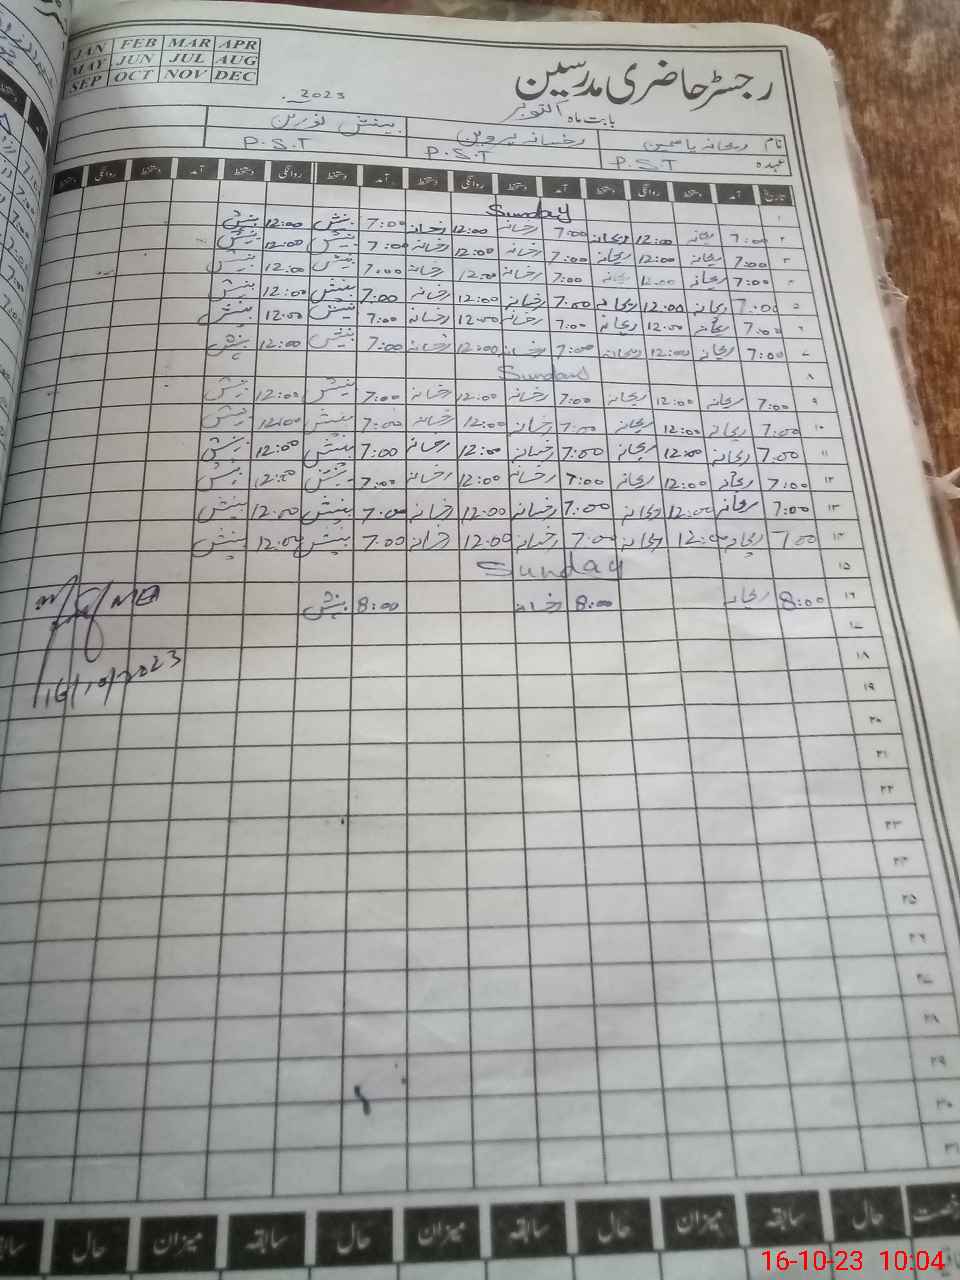 JAN FEB MAR APR
MAY JUN JUL AUG
SEP OCT NOV DEC
رجسٹر حاضری مدرسین
بابت ماہ اکتوبر 2023
نام ریحانہ یاسمین رخسانہ پروین بینش نورین
عہدہ P.S.T P.S.T P.S.T
تاریخ آمد دستخط روانگی دستخط آمد دستخط روانگی دستخط آمد دستخط روانگی دستخط آمد دستخط روانگی دستخط
۱ Sunday
۲ 7:00 ریحانہ 12:00 ریحانہ 7:00 رخسانہ 12:00 رخسانہ 7:00 بینش 12:00 بینش
۳ 7:00 ریحانہ 12:00 ریحانہ 7:00 رخسانہ 12:00 رخسانہ 7:00 بینش 12:00 بینش
۴ 7:00 ریحانہ 12:00 ریحانہ 7:00 رخسانہ 12:00 رخسانہ 7:00 بینش 12:00 بینش
۵ 7:00 ریحانہ 12:00 ریحانہ 7:00 رخسانہ 12:00 رخسانہ 7:00 بینش 12:00 بینش
۶ 7:00 ریحانہ 12:00 ریحانہ 7:00 رخسانہ 12:00 رخسانہ 7:00 بینش 12:00 بینش
۷ 7:00 ریحانہ 12:00 ریحانہ 7:00 رخسانہ 12:00 رخسانہ 7:00 بینش 12:00 بینش
۸ Sunday
۹ 7:00 ریحانہ 12:00 ریحانہ 7:00 رخسانہ 12:00 رخسانہ 7:00 بینش 12:00 بینش
۱۰ 7:00 ریحانہ 12:00 ریحانہ 7:00 رخسانہ 12:00 رخسانہ 7:00 بینش 12:00 بینش
۱۱ 7:00 ریحانہ 12:00 ریحانہ 7:00 رخسانہ 12:00 رخسانہ 7:00 بینش 12:00 بینش
۱۲ 7:00 ریحانہ 12:00 ریحانہ 7:00 رخسانہ 12:00 رخسانہ 7:00 بینش 12:00 بینش
۱۳ 7:00 ریحانہ 12:00 ریحانہ 7:00 رخسانہ 12:00 رخسانہ 7:00 بینش 12:00 بینش
۱۴ 7:00 ریحانہ 12:00 ریحانہ 7:00 رخسانہ 12:00 رخسانہ 7:00 بینش 12:00 بینش
۱۵ Sunday
۱۶ 8:00 ریحانہ 8:00 رخسانہ 8:00 بینش
16/10/2023
۱۷
۱۸
۱۹
۲۰
۲۱
۲۲
۲۳
۲۴
۲۵
۲۶
۲۷
۲۸
۲۹
۳۰
۳۱
حال سابقہ میزان حال سابقہ میزان حال سابقہ میزان حال
16-10-23 10:04